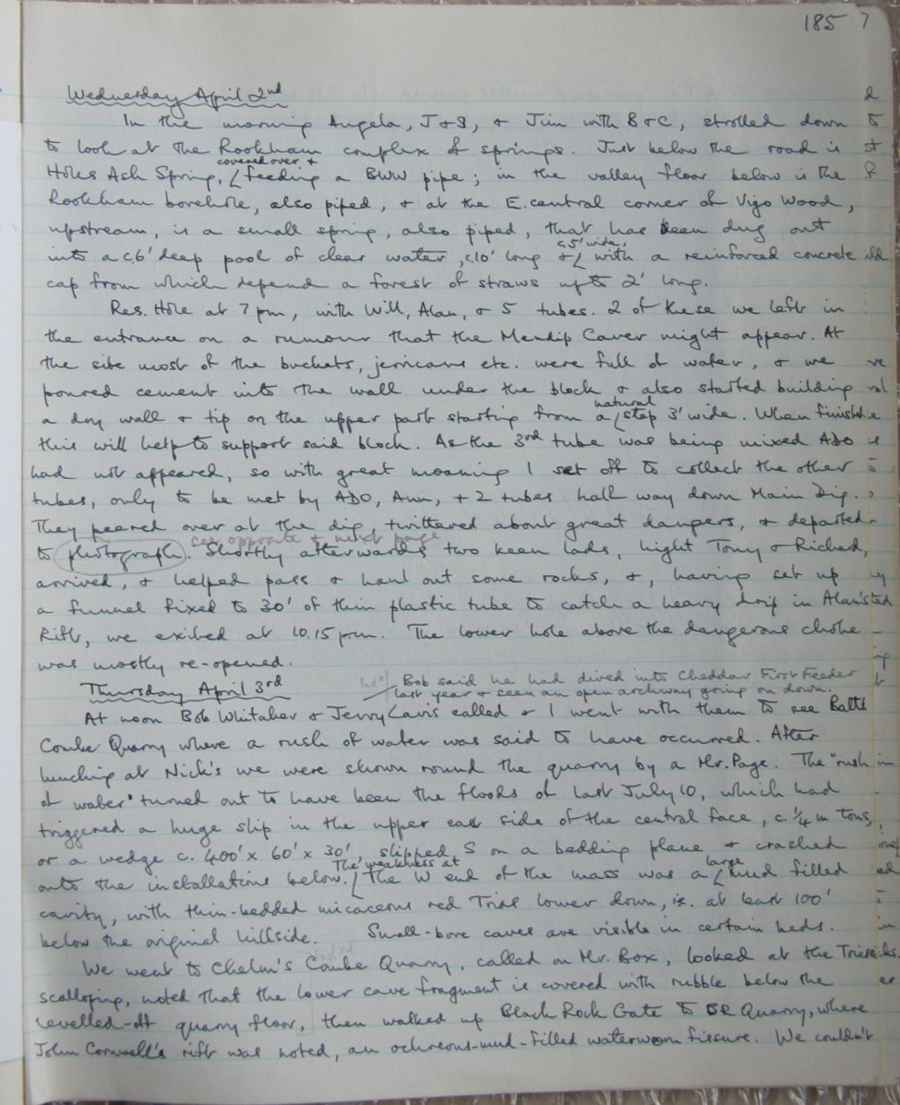 185 7
Wednesday April 2nd
In the morning Angela, J & S, & Jim with B & C, strolled down
to look at the Rookham complex of springs. Just below the road is
covered over &
Holes Ash Spring, feeding a BWW pipe; in the valley floor below is the
Rookham borehole, also piped, & at the E. central corner of Vigo Wood,
upstream, is a small spring, also piped, that has been dug out
c.5' wide,
into a c.6' deep pool of clear water, c.10' long & with a reinforced concrete
cap from which depend a forest of straws up to 2' long.
Res. Hole at 7 pm, with Will, Alan, & 5 tubes. 2 of these we left in
the entrance on a rumour that the Mendip Caver might appear. At
the site most of the buckets, jerricans etc. were full of water, & we
poured cement into the wall under the block & also started building
natural
a dry wall & tip on the upper part starting from a step 3' wide. When finished
this will help to support said block. As the 3rd tube was being mixed ADO
had not appeared, so with great moaning I set off to collect the other
tubes, only to be met by ADO, Ann, + 2 tubes half way down Main Dig.
They peered over at the dig, twittered about great dangers, & departed
see opposite & next page
to photograph. Shortly afterwards two keen lads, hight Tony & Richard,
arrived, & helped pass & haul out some rocks, &, having set up
a funnel fixed to 30' of thin plastic tube to catch a heavy drip in Alan's
Rift, we exited at 10.15 pm. The lower hole above the dangerous choke
was mostly re-opened.
Bob said he had dived into Cheddar First Feeder
Thursday April 3rd
last year & seen an open archway going on down.
At noon Bob Whitaker & Jerry Lavis called & I went with them to see Batts
Combe Quarry where a rush of water was said to have occurred. After
lunching at Nick's we were shown round the quarry by a Mr. Page. The "rush
of water" turned out to have been the floods of last July 10, which had
triggered a huge slip in the upper east side of the central face, c. 1/4 m tons,
or a wedge c. 400' x 60' x 30' slipped S on a bedding plane & crashed
The weakness at large
onto the installations below. The W end of the mass was a mud filled
cavity, with thin-bedded micaceous red Trias lower down, ie. at least 100'
below the original hillside. Small-bore caves are visible in certain beds.
We went to Chelm's Combe Quarry, called on Mr. Box, looked at the Triassic
scalloping, noted that the lower cave fragment is covered with rubble below the
levelled-off quarry floor, then walked up Black Rock Gate to BR Quarry, where
John Cornwell's rift was noted, an ochreous-mud-filled waterworn fissure. We couldn't